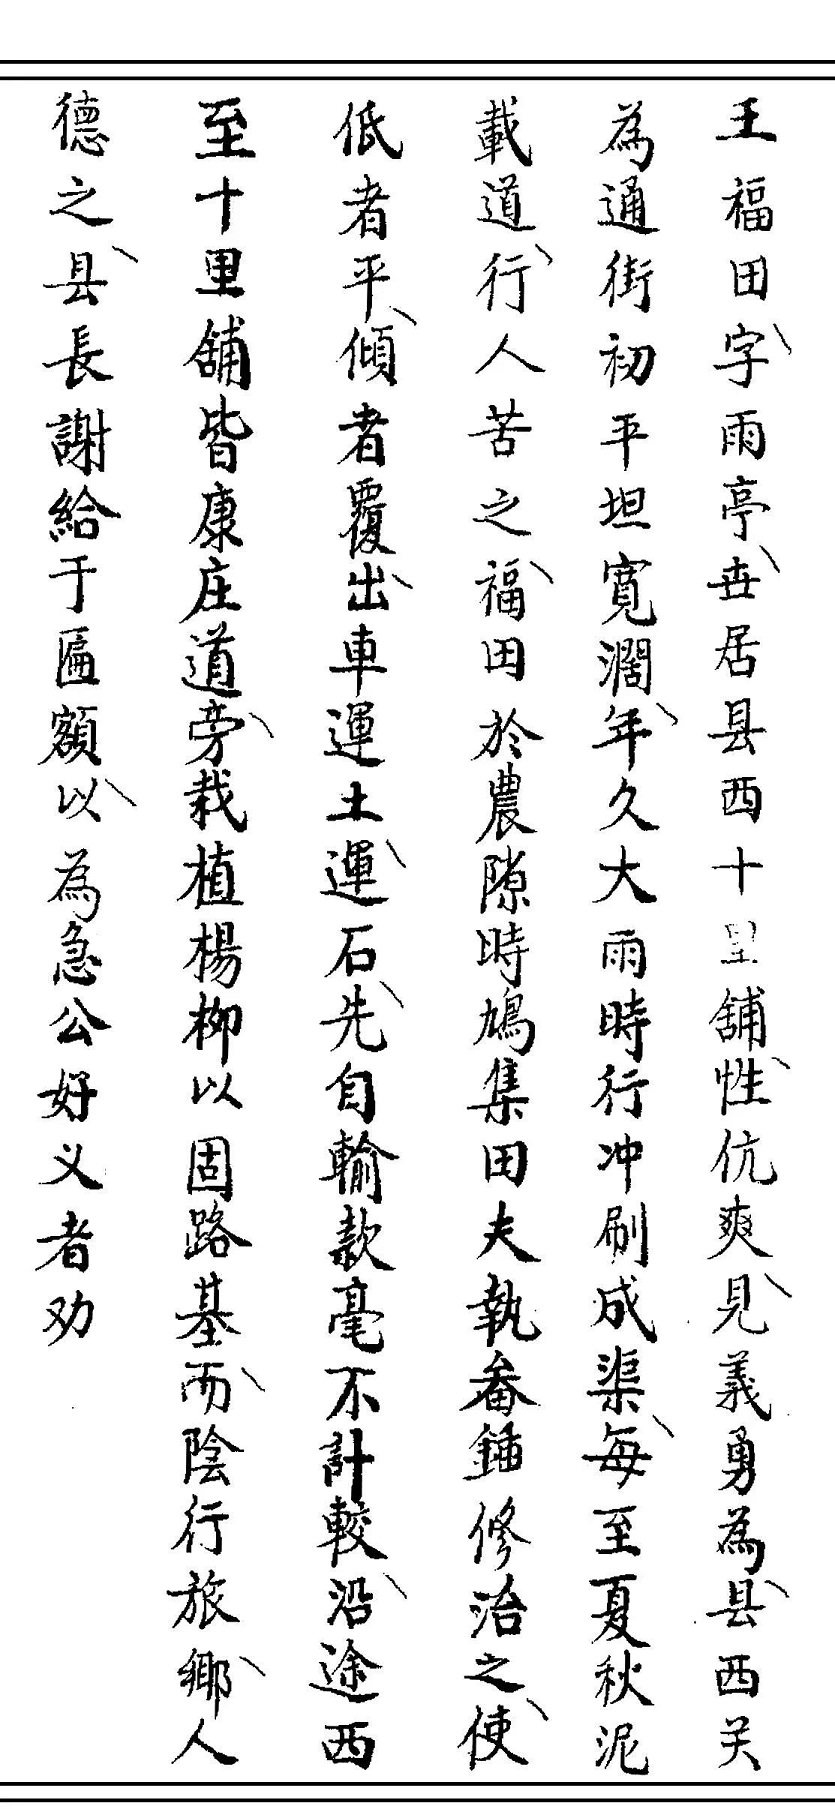 王福田字雨亭世居县西十里舖性伉爽見義勇為县西关
為通街初平坦寬濶年久大雨時行冲刷成渠每至夏秋泥
載道行人苦之福田於農隙時鳩集田夫執畚鍤修治之使
低者平傾者覆出車運土運石先自輸款毫不計較沿途西
至十里舖皆康庄道旁栽植楊柳以固路基而陰行旅鄉人
德之县長謝給于匾額以為急公好义者劝